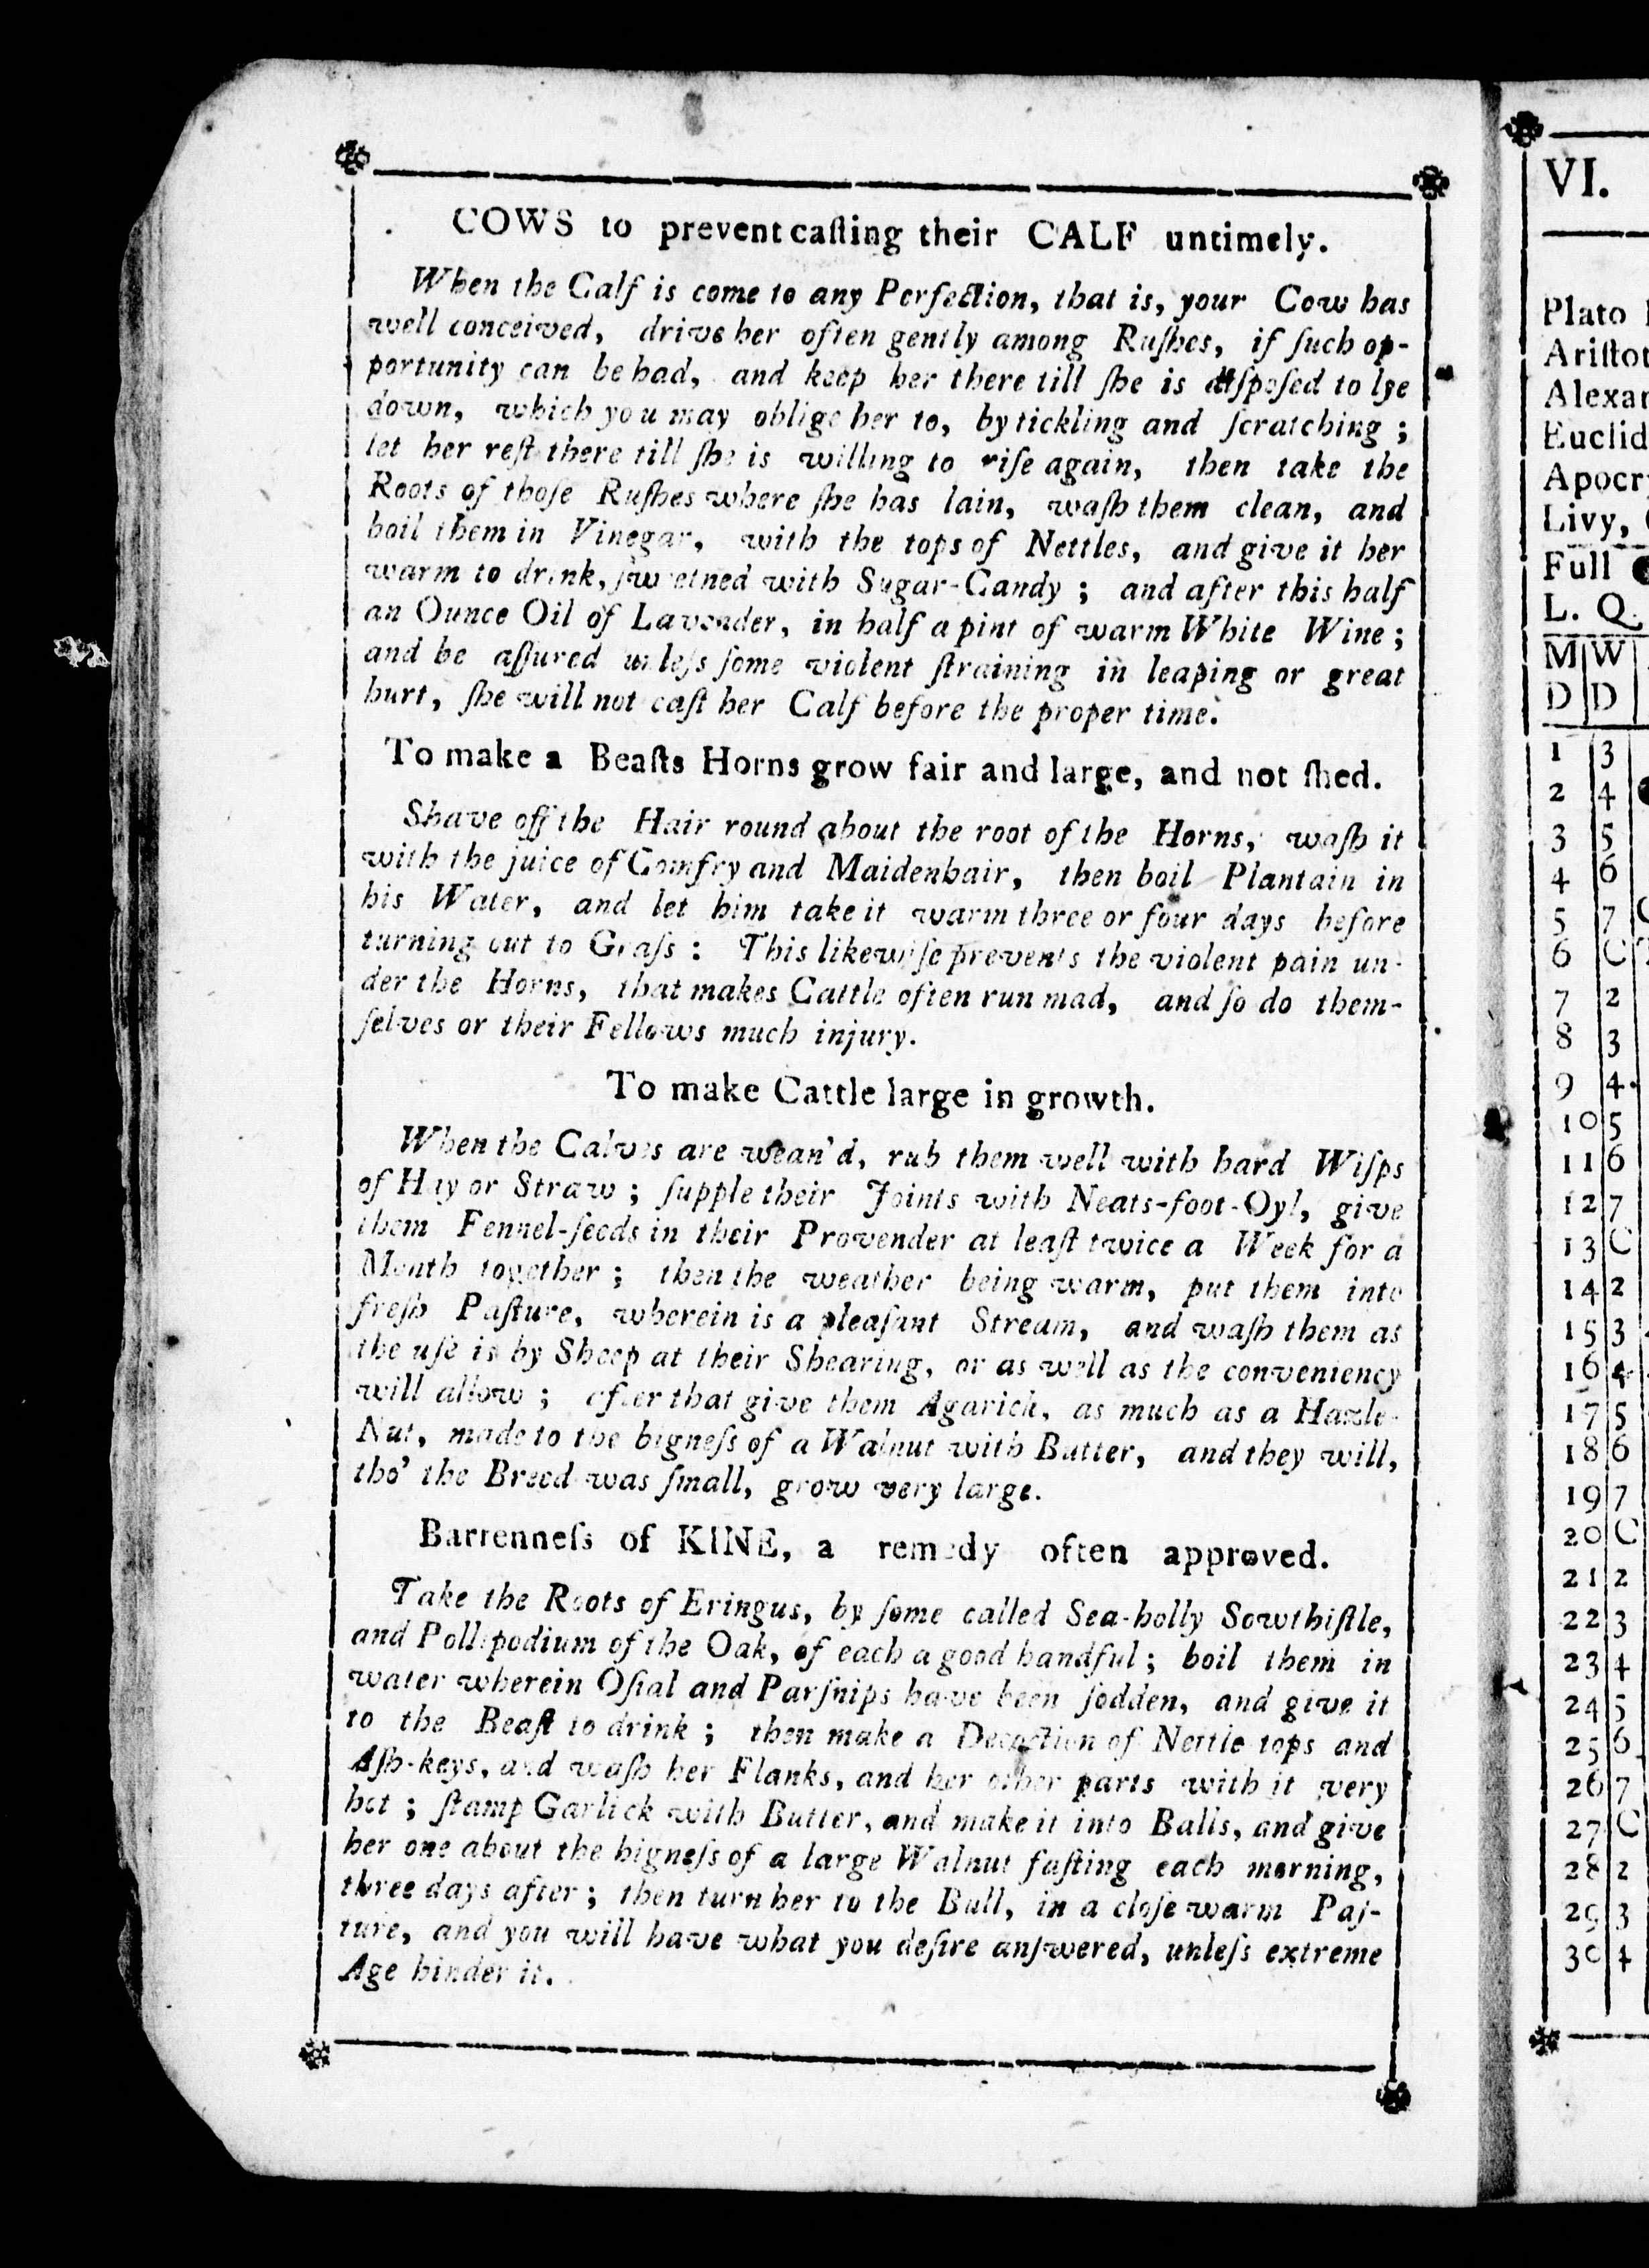 COWS to prevent caſting their CALF untimely.
When the Calf is come to any Perfection, that is, your Cow has
well conceived, drive her often gently among Ruſhes, if ſuch op-
portunity can be had, and keep her there till ſhe is diſpoſed to lye
down, which you may oblige her to, by tickling and ſcratching ;
let her reſt there till ſhe is willing to riſe again, then take the
Roots of thoſe Ruſhes where ſhe has lain, waſh them clean, and
boil them in Vinegar, with the tops of Nettles, and give it her
warm to drink, ſweetned with Sugar-Candy ; and after this half
an Ounce Oil of Lavender, in half a pint of warm White Wine ;
and be aſſured unleſs ſome violent ſtraining in leaping or great
hurt, ſhe will not caſt her Calf before the proper time.
To make a Beaſts Horns grow fair and large, and not ſhed.
Shave off the Hair round about the root of the Horns, waſh it
with the juice of Comfry and Maidenhair, then boil Plantain in
his Water, and let him take it warm three or four days before
turning out to Graſs : This likewiſe prevents the violent pain un-
der the Horns, that makes Cattle often run mad, and ſo do them-
ſelves or their Fellows much injury.
To make Cattle large in growth.
When the Calves are wean'd, rub them well with hard Wiſps
of Hay or Straw ; ſupple their Joints with Neats-foot-Oyl, give
them Fennel-ſeeds in their Provender at leaſt twice a Week for a
Month together ; then the weather being warm, put them into
freſh Paſture, wherein is a pleaſant Stream, and waſh them as
the uſe is by Sheep at their Shearing, or as well as the conveniency
will allow ; after that give them Agarick, as much as a Hazle-
Nut, made to the bigneſs of a Walnut with Butter, and they will,
tho' the Breed was ſmall, grow very large.
Barrenneſs of KINE, a remedy often approved.
Take the Roots of Eringus, by ſome called Sea-holly Sowthiſtle,
and Pollipodium of the Oak, of each a good handful ; boil them in
water wherein Oſial and Parſnips have been ſodden, and give it
to the Beaſt to drink ; then make a Decoction of Nettle tops and
Aſh-keys, and waſh her Flanks, and her other parts with it very
hot ; ſtamp Garlick with Butter, and make it into Balls, and give
her one about the bigneſs of a large Walnut faſting each morning,
three days after ; then turn her to the Bull, in a cloſe warm Paſ-
ture, and you will have what you deſire anſwered, unleſs extreme
Age hinder it.
VI.
Plato
Ariſtot
Alexan
Euclid
Apocr
Livy,
Full
L. Q.
M W
D D
1 3
2 4
3 5
4 6
5 7
6 C
7 2
8 3
9 4
10 5
11 6
12 7
13 C
14 2
15 3
16 4
17 5
18 6
19 7
20 C
21 2
22 3
23 4
24 5
25 6
26 7
27 C
28 2
29 3
30 4